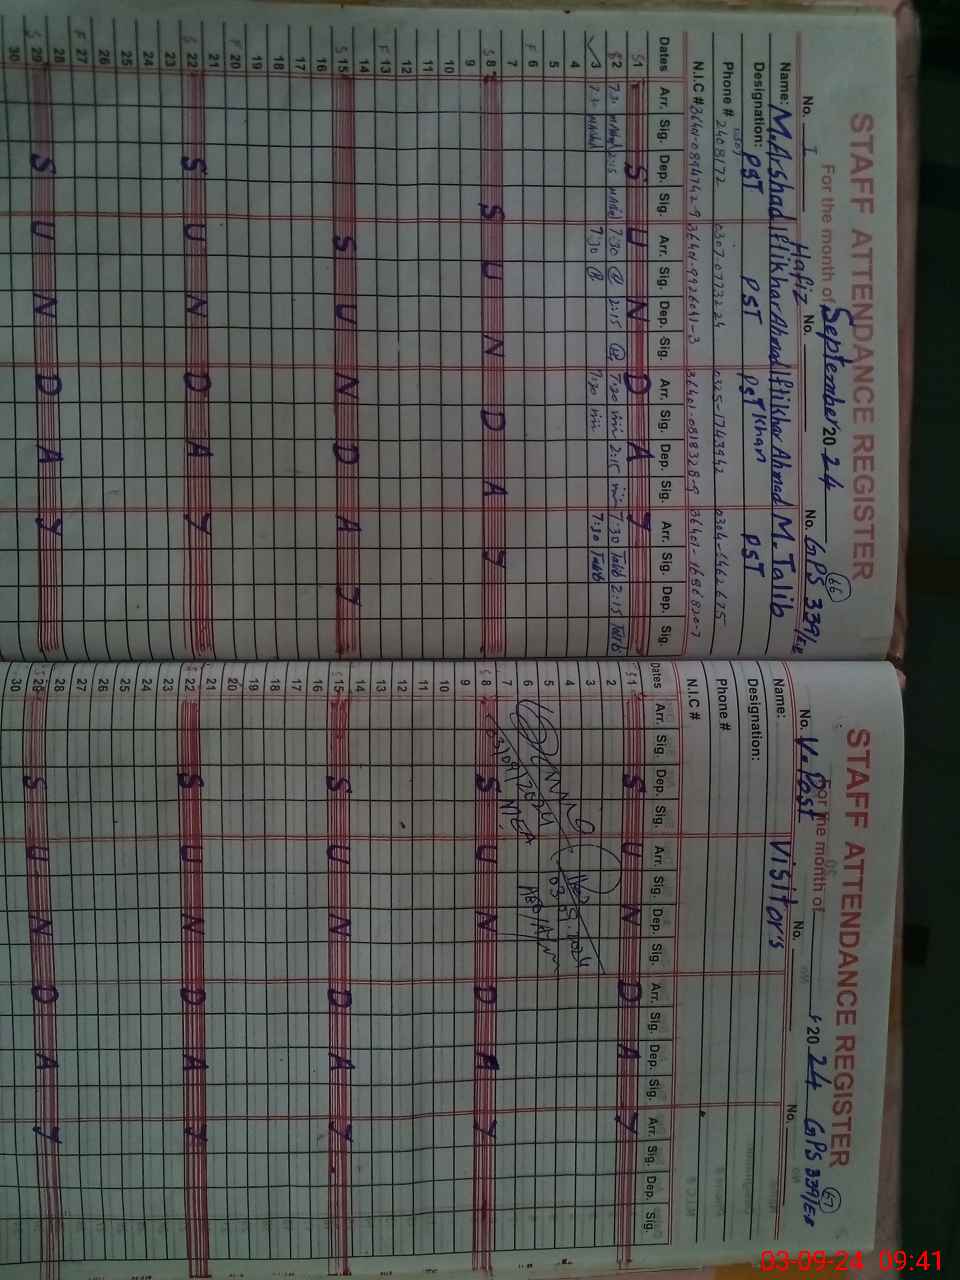 STAFF ATTENDANCE REGISTER
For the month of September 2024
66
No. 1 No. No. GPS 339/EB
Hafiz
Name: M.Arshad Iftikhar Ahmad Iftikhar Ahmad M. Talib
Designation: PST PST PST Khan PST
Phone # 2408172 0307-0773224 0325-1743942 0304-1462675
N.I.C # 36401-0894742-9 36401-9926041-3 36401-0818328-9 36401-1696820-7
Dates Arr. Sig. Dep. Sig. Arr. Sig. Dep. Sig. Arr. Sig. Dep. Sig. Arr. Sig. Dep. Sig.
S 1 SUNDAY
2 7:30 2:15 7:30 2:15 7:30 2:15 7:30 Talib 2:15 Talib
3 7:30 7:30 7:30 7:30 Talib
4
5
F 6
7
S 8 SUNDAY
9
10
11
12
F 13
14
S 15 SUNDAY
16
17
18
19
F 20
21
S 22 SUNDAY
23
24
25
26
F 27
28
S 29 SUNDAY
30
STAFF ATTENDANCE REGISTER
For the month of 2024
67
No. V. Post No. No. GPS 339/EB
Name: Visitor's
Designation:
Phone #
N.I.C #
Dates Arr. Sig. Dep. Sig. Arr. Sig. Dep. Sig. Arr. Sig. Dep. Sig. Arr. Sig. Dep. Sig.
S 1 SUNDAY
2
3
4 03.09.2024
5
6
7 03/09/2024 MEA
S 8 SUNDAY
9
10
11
12
13
14
S 15 SUNDAY
16
17
18
19
20
21
S 22 SUNDAY
23
24
25
26
27
28
S 29 SUNDAY
30
03-09-24 09:41